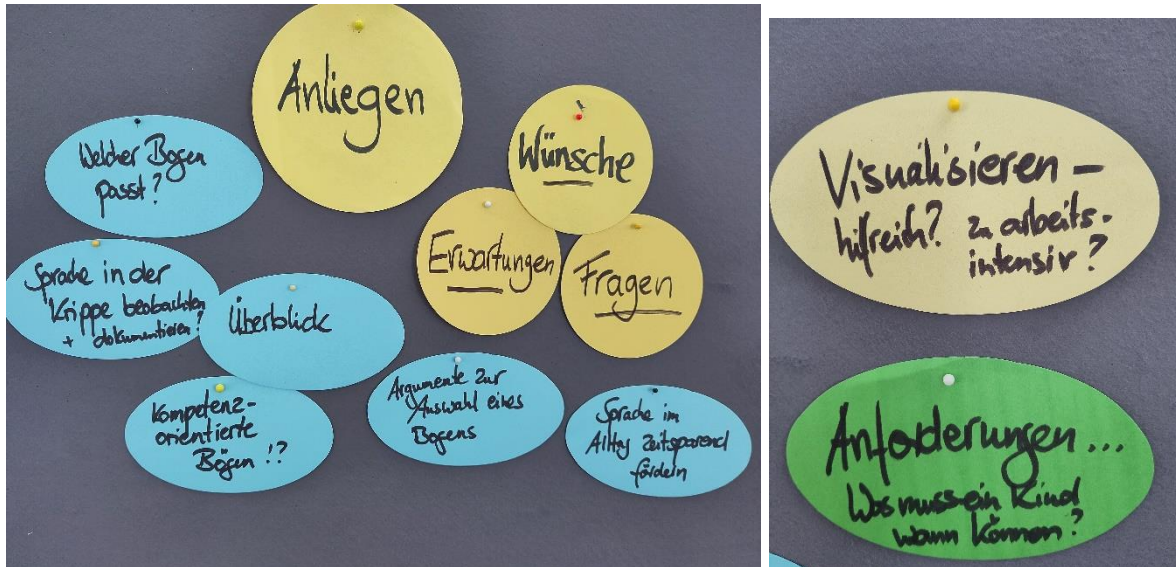 Anliegen
Wünsche
Erwartungen
Fragen
Welcher Bogen
passt?
Sprache in der
Krippe beobachten
+ dokumentieren?
Überblick
Kompetenz-
orientierte
Bögen !?
Argumente zur
Auswahl eines
Bogens
Sprache im
Alltag zeitsparend
fördern
Visualisieren –
hilfreich? zu arbeits-
intensiv?
Anforderungen...
Was muss ein Kind
wann können?